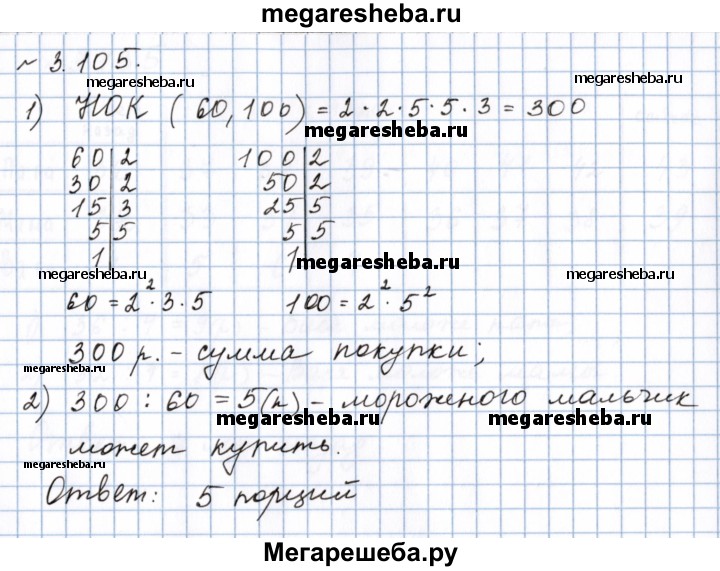 megaresheba.ru
№ 3.105.
megaresheba.ru megaresheba.ru
1) НОК (60,100) = 2·2·5·5·3 = 300
megaresheba.ru
60|2 100|2
30|2 50|2
15|3 25|5
5|5 5|5
1| 1|
megaresheba.ru megaresheba.ru
60 = 2²·3·5 100 = 2²·5²
300 р. - сумма покупки;
megaresheba.ru
2) 300 : 60 = 5(п) - мороженого мальчик
megaresheba.ru megaresheba.ru
может купить.
megaresheba.ru
Ответ: 5 порций
Мегарешеба.ру